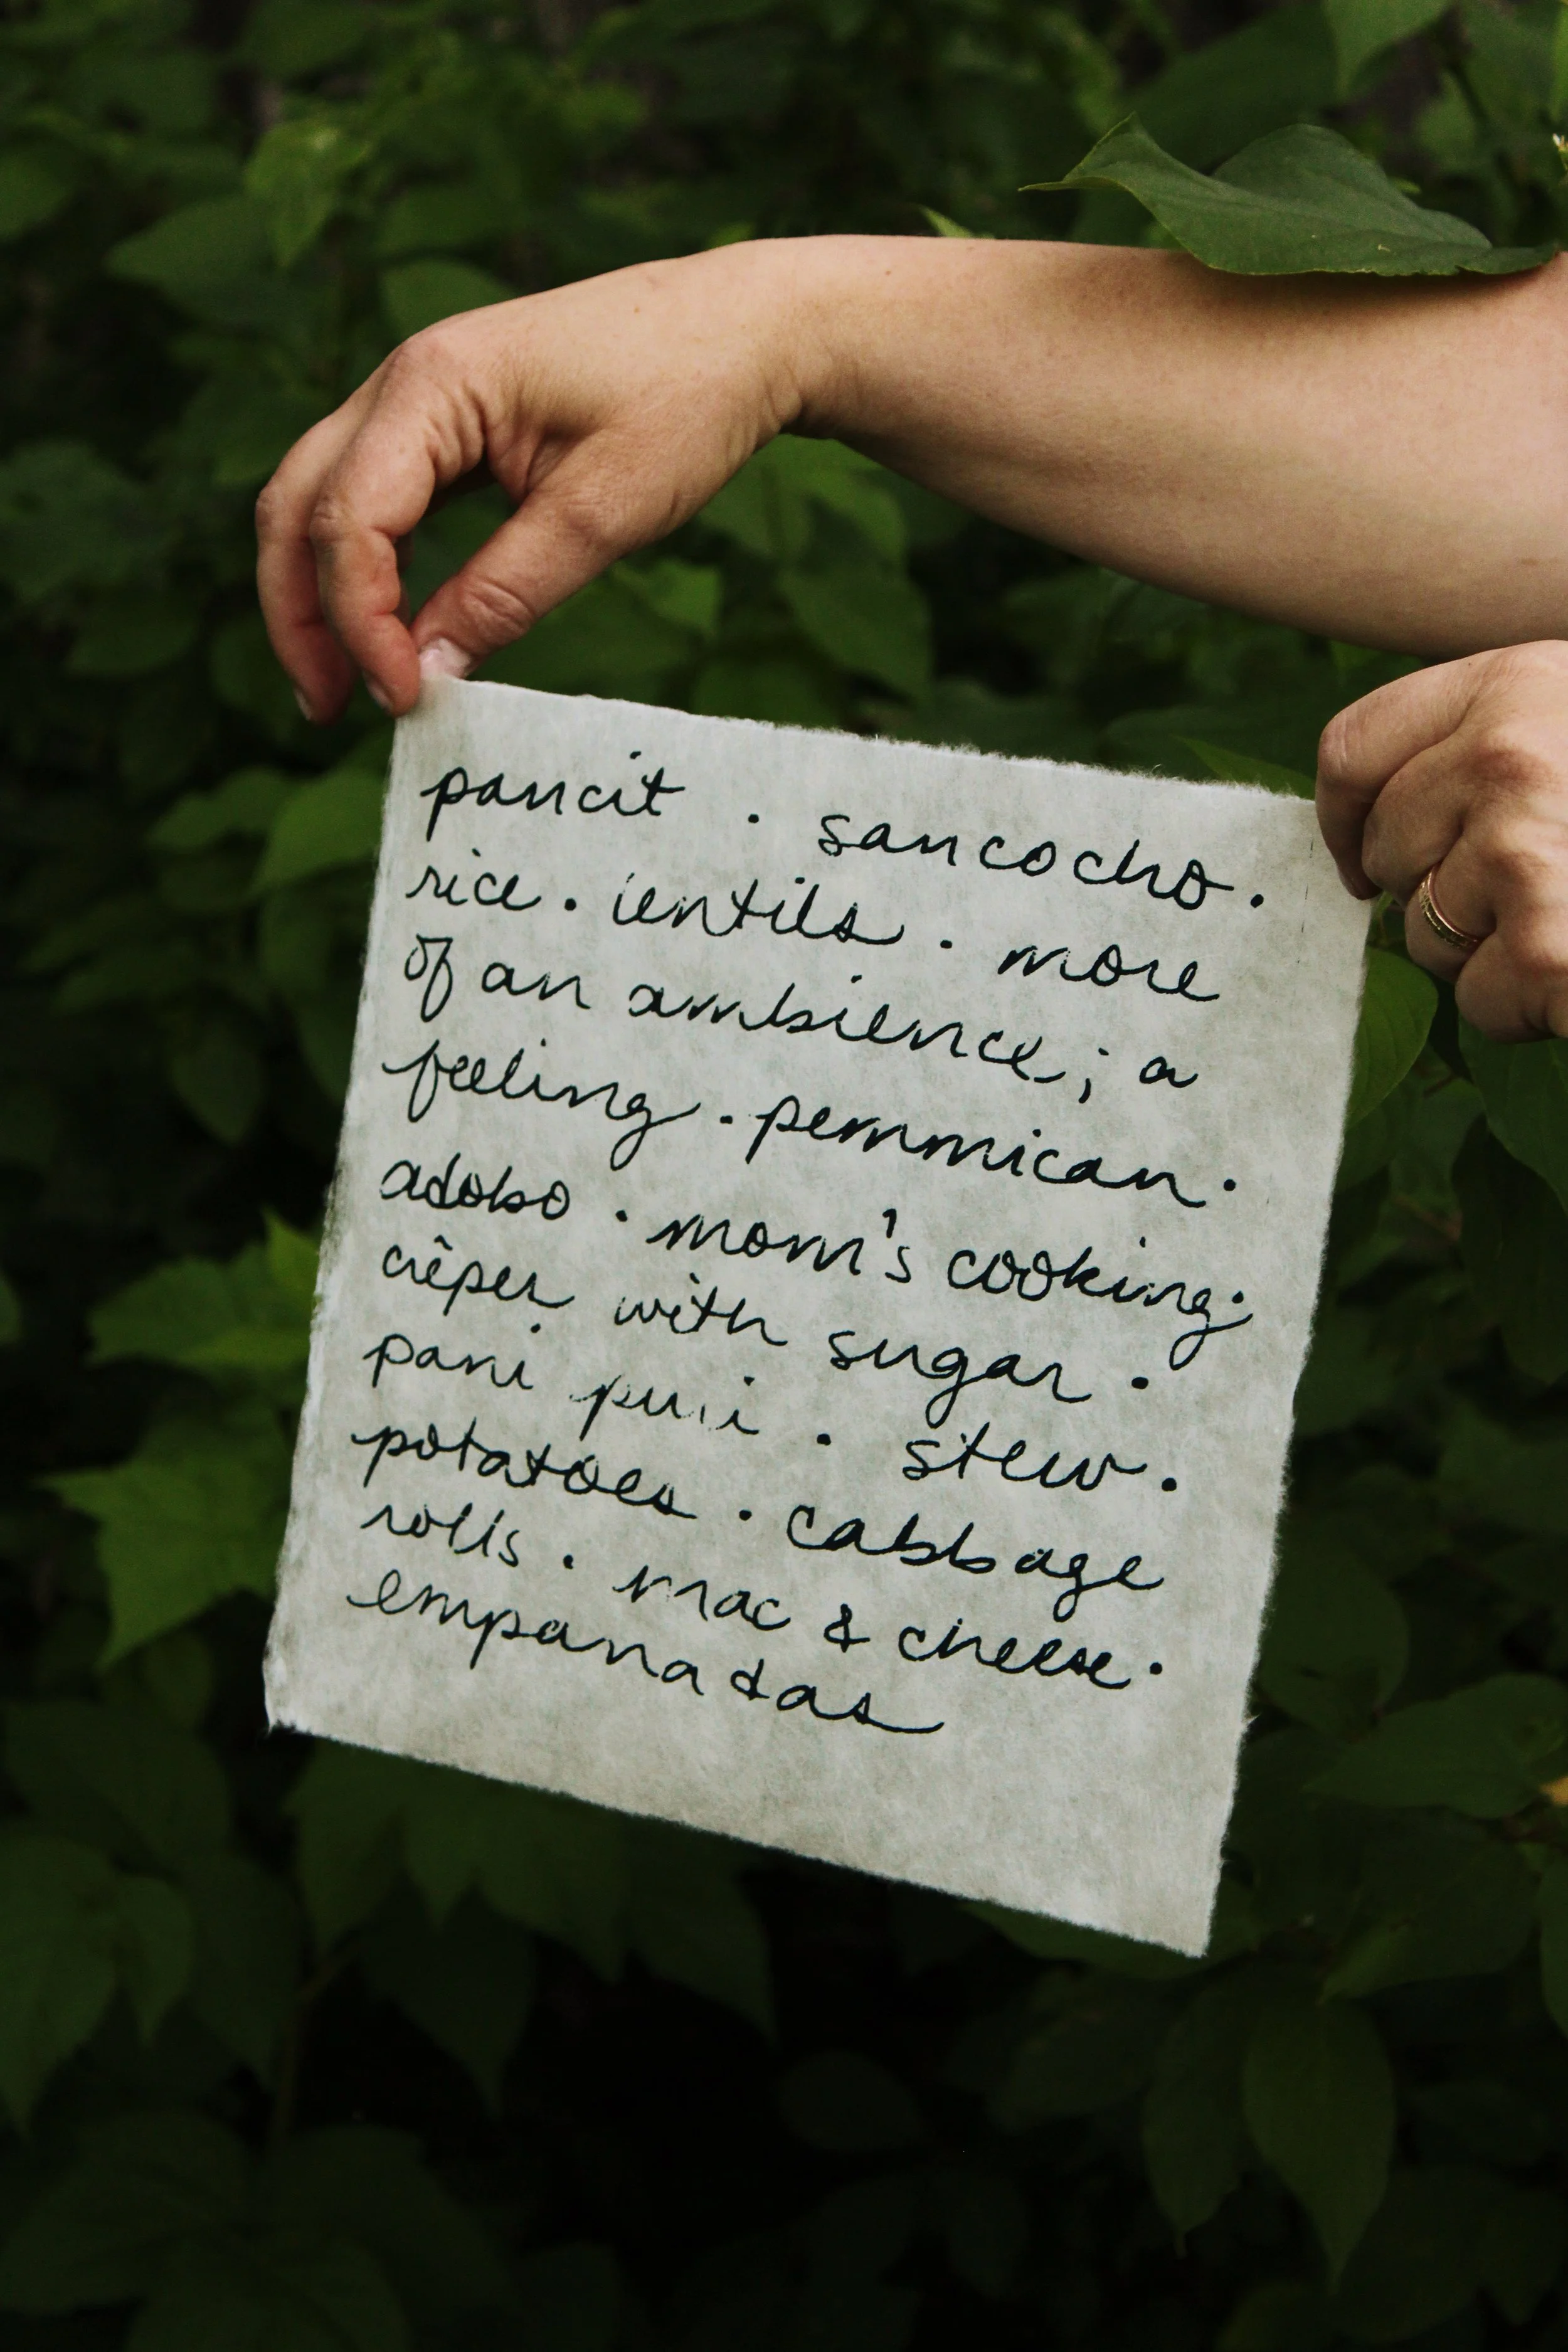 pancit . sancocho.
rice . lentils . more
of an ambience; a
feeling . pemmican.
adobo . mom's cooking.
crêpes with sugar .
pani puri . stew.
potatoes . cabbage
rolls . mac & cheese.
empanadas